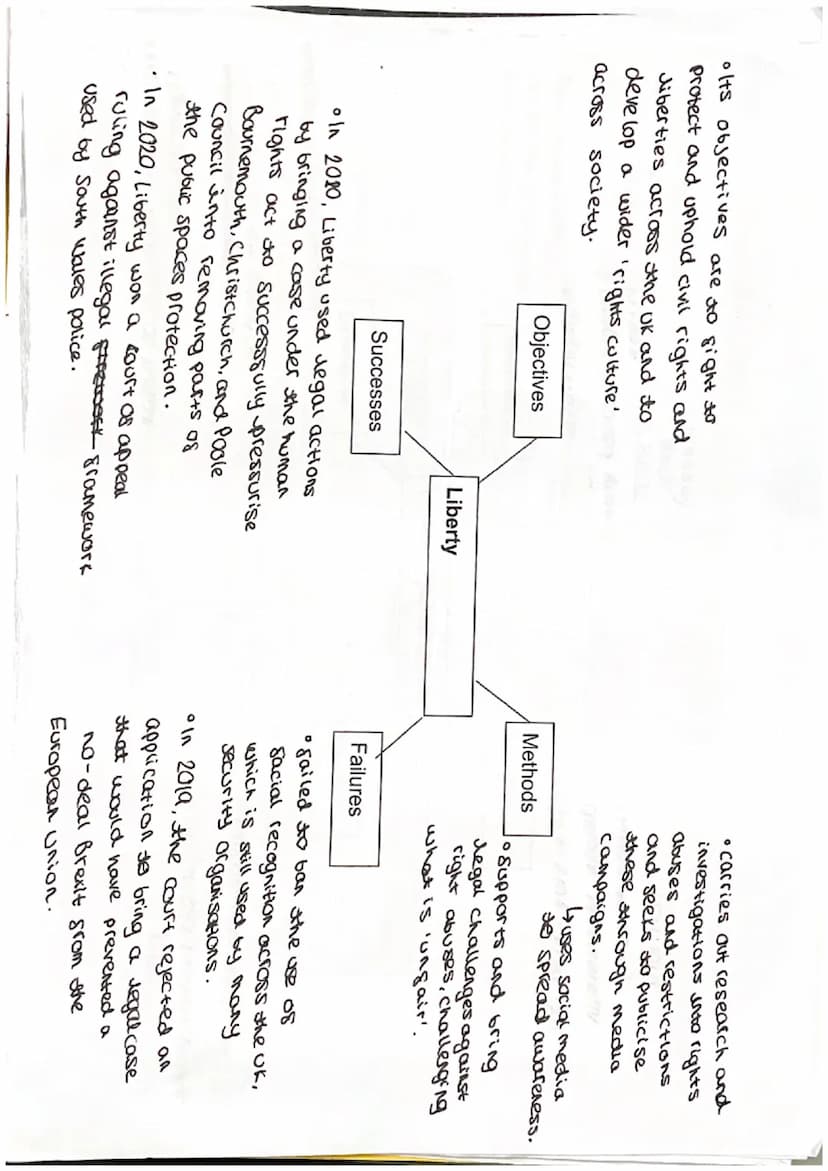 Liberty
Objectives
• Its objectives are to fight to
protect and uphold civil rights and
liberties across the UK and to
develop a wider 'rights culture'
across society.
Methods
• carries out research and
investigations into rights
abuses and restrictions
and seeks to publicise
these through media
campaigns.
↳ uses social media
to spread awareness.
• supports and bring
legal challenges against
right abuses, challenging
what is 'unfair'.
Successes
• In 2020, Liberty used legal actions
by bringing a case under the human
rights act to successfully pressurise
Bournemouth, Christchurch, and Poole
Council into removing parts of
the public spaces protection.
• In 2020, Liberty won a court of appeal
ruling against illegal framework
used by South Wales police.
Failures
• failed to ban the use of
facial recognition across the UK,
which is still used by many
security organisations.
• In 2019, the court rejected an
application to bring a legal case
that would have prevented a
no-deal Brexit from the
European Union.